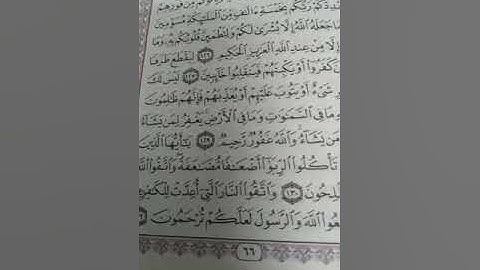 مِّن فَوْرِهِمْ
رَبُّكُم بِخَمْسَةِ ءَالَٰفٍ مِّنَ ٱلْمَلَٰٓئِكَةِ مُسَوِّمِينَ
مَا جَعَلَهُ ٱللَّهُ إِلَّا بُشْرَىٰ لَكُمْ وَلِتَطْمَئِنَّ قُلُوبُكُم بِهِۦ وَمَا
إِلَّا مِنْ عِندِ ٱللَّهِ ٱلْعَزِيزِ ٱلْحَكِيمِ ١٢٦ لِيَقْطَعَ طَرَفًا
نَ كَفَرُوٓا۟ أَوْ يَكْبِتَهُمْ فَيَنقَلِبُوا۟ خَآئِبِينَ ١٢٧ لَيْسَ لَكَ
شَىْءٌ أَوْ يَتُوبَ عَلَيْهِمْ أَوْ يُعَذِّبَهُمْ فَإِنَّهُمْ ظَٰلِمُونَ
وَمَا فِى ٱلسَّمَٰوَٰتِ وَمَا فِى ٱلْأَرْضِ يَغْفِرُ لِمَن يَشَآءُ
مَن يَشَآءُ وَٱللَّهُ غَفُورٌ رَّحِيمٌ ١٢٩ يَٰٓأَيُّهَا ٱلَّذِينَ
تَأْكُلُوا۟ ٱلرِّبَوٰٓا۟ أَضْعَٰفًا مُّضَٰعَفَةً وَٱتَّقُوا۟ ٱللَّهَ
لِحُونَ ١٣٠ وَٱتَّقُوا۟ ٱلنَّارَ ٱلَّتِىٓ أُعِدَّتْ لِلْكَٰفِرِينَ
عُوا۟ ٱللَّهَ وَٱلرَّسُولَ لَعَلَّكُمْ تُرْحَمُونَ
٦٦